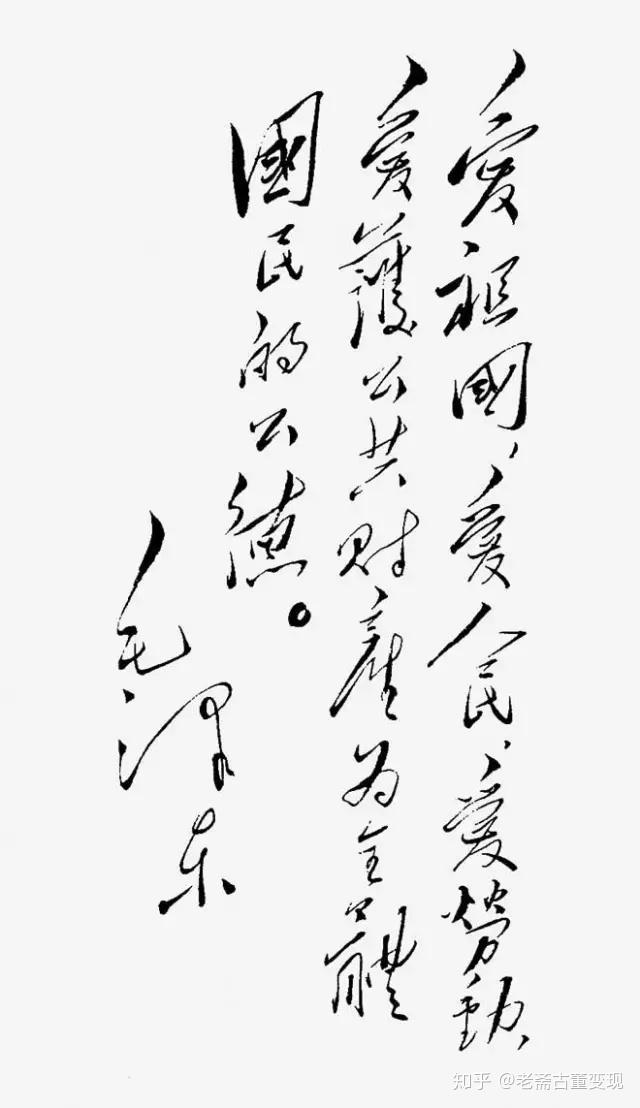 愛祖國，愛人民，愛勞動，
愛護公共财產为全體
國民的公德。
毛泽东
知乎 @老斋古董变现